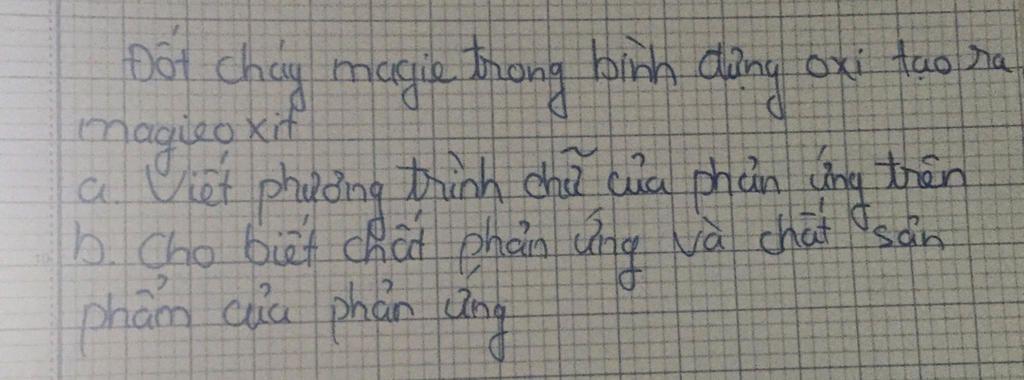 Đốt cháy magie trong bình đựng oxi tạo ra
magieoxit
a. Viết phương trình chữ của phản ứng trên
b. Cho biết chất phản ứng và chất sản
phẩm của phản ứng